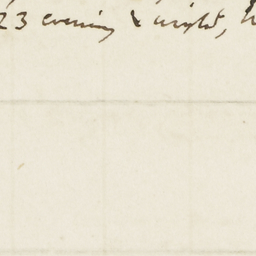 23 evening & night,